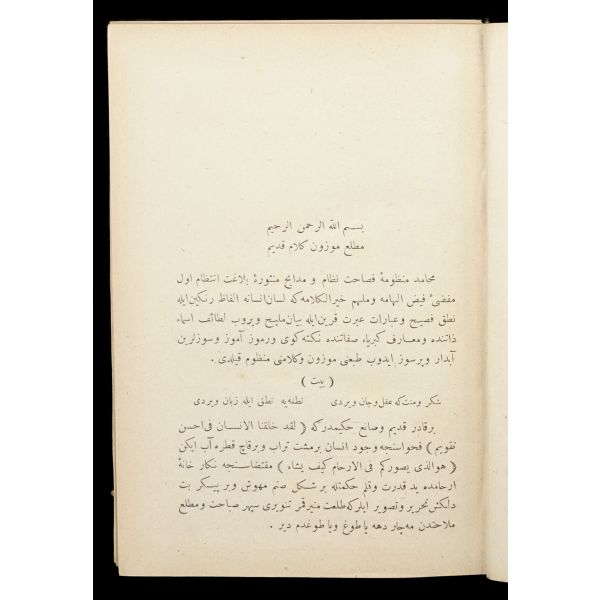 بسم الله الرحمن الرحيم
مطلع موزون كلام قديم
محامد منظومهٔ فصاحت نظام و مدايح منثورهٔ بلاغت انتظام اول
مفضئ فيض الهامه وملهم خيرالكلامه كه لسان انسانه الفاظ رنكين ايله
نطق فصيح و عبارات عبرت قرين ايله بيان مليح ويروب لطائف اسماء
ذاتنده ومعارف كبرياء صفاتنده نكته كوى ورموز آموز وسوزلرين
آبدار وپرسوز ايدوب طبعنى موزون وكلامنى منظوم قيلدى .
( بيت )
شكر ومنت كه عقل وجان ويردى نطفه يه نطق ايله زبان ويردى
برقادر قديم وصانع حكيمدركه ( لقد خلقنا الانسان فى احسن
تقويم ) فحواسنجه وجود انسان برمشت تراب وبرقاچ قطره آب ايكن
( هوالذى يصوركم فى الارحام كيف يشاء ) مقتضاسنجه نكار خانهٔ
ارحامده يد قدرت وقلم حكمتله بر شكل صنم مهوش وبر پيكر بت
دلكش تحرير وتصوير ايلركه طلعت منيرقمر تنويرى سپهر صباحت ومطلع
ملاحتدن مه چار دهه ياطوغ وياطوغدم دير .